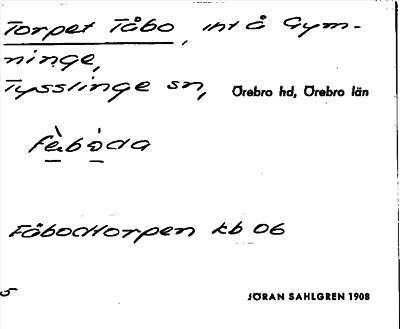 Torpet Tåbo, int å Gym-
ninge,
Tysslinge sn, Örebro hd, Örebro län
fàbòda
Fåbodtorpen kb 06
5
JÖRAN SAHLGREN 1908